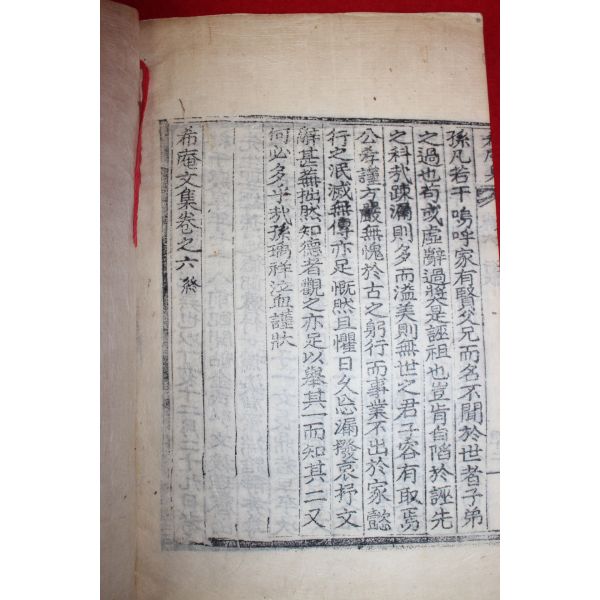 孫凡若干嗚呼家有賢父兄而名不聞於世者子弟
之過也苟或虛辭過奬是誣祖也豈肯自陷於誣先
之科哉踈漏則多而溢美則無世之君子容有取焉
公孝謹方嚴無愧於古之躬行而事業不出於家懿
行之泯滅無傳亦足慨然且懼日久忘漏撥哀抒文
辭甚蕪拙然知德者觀之亦足以擧其一而知其二又
何必多乎哉孫瑀祥泣血謹狀
希庵文集卷之六終